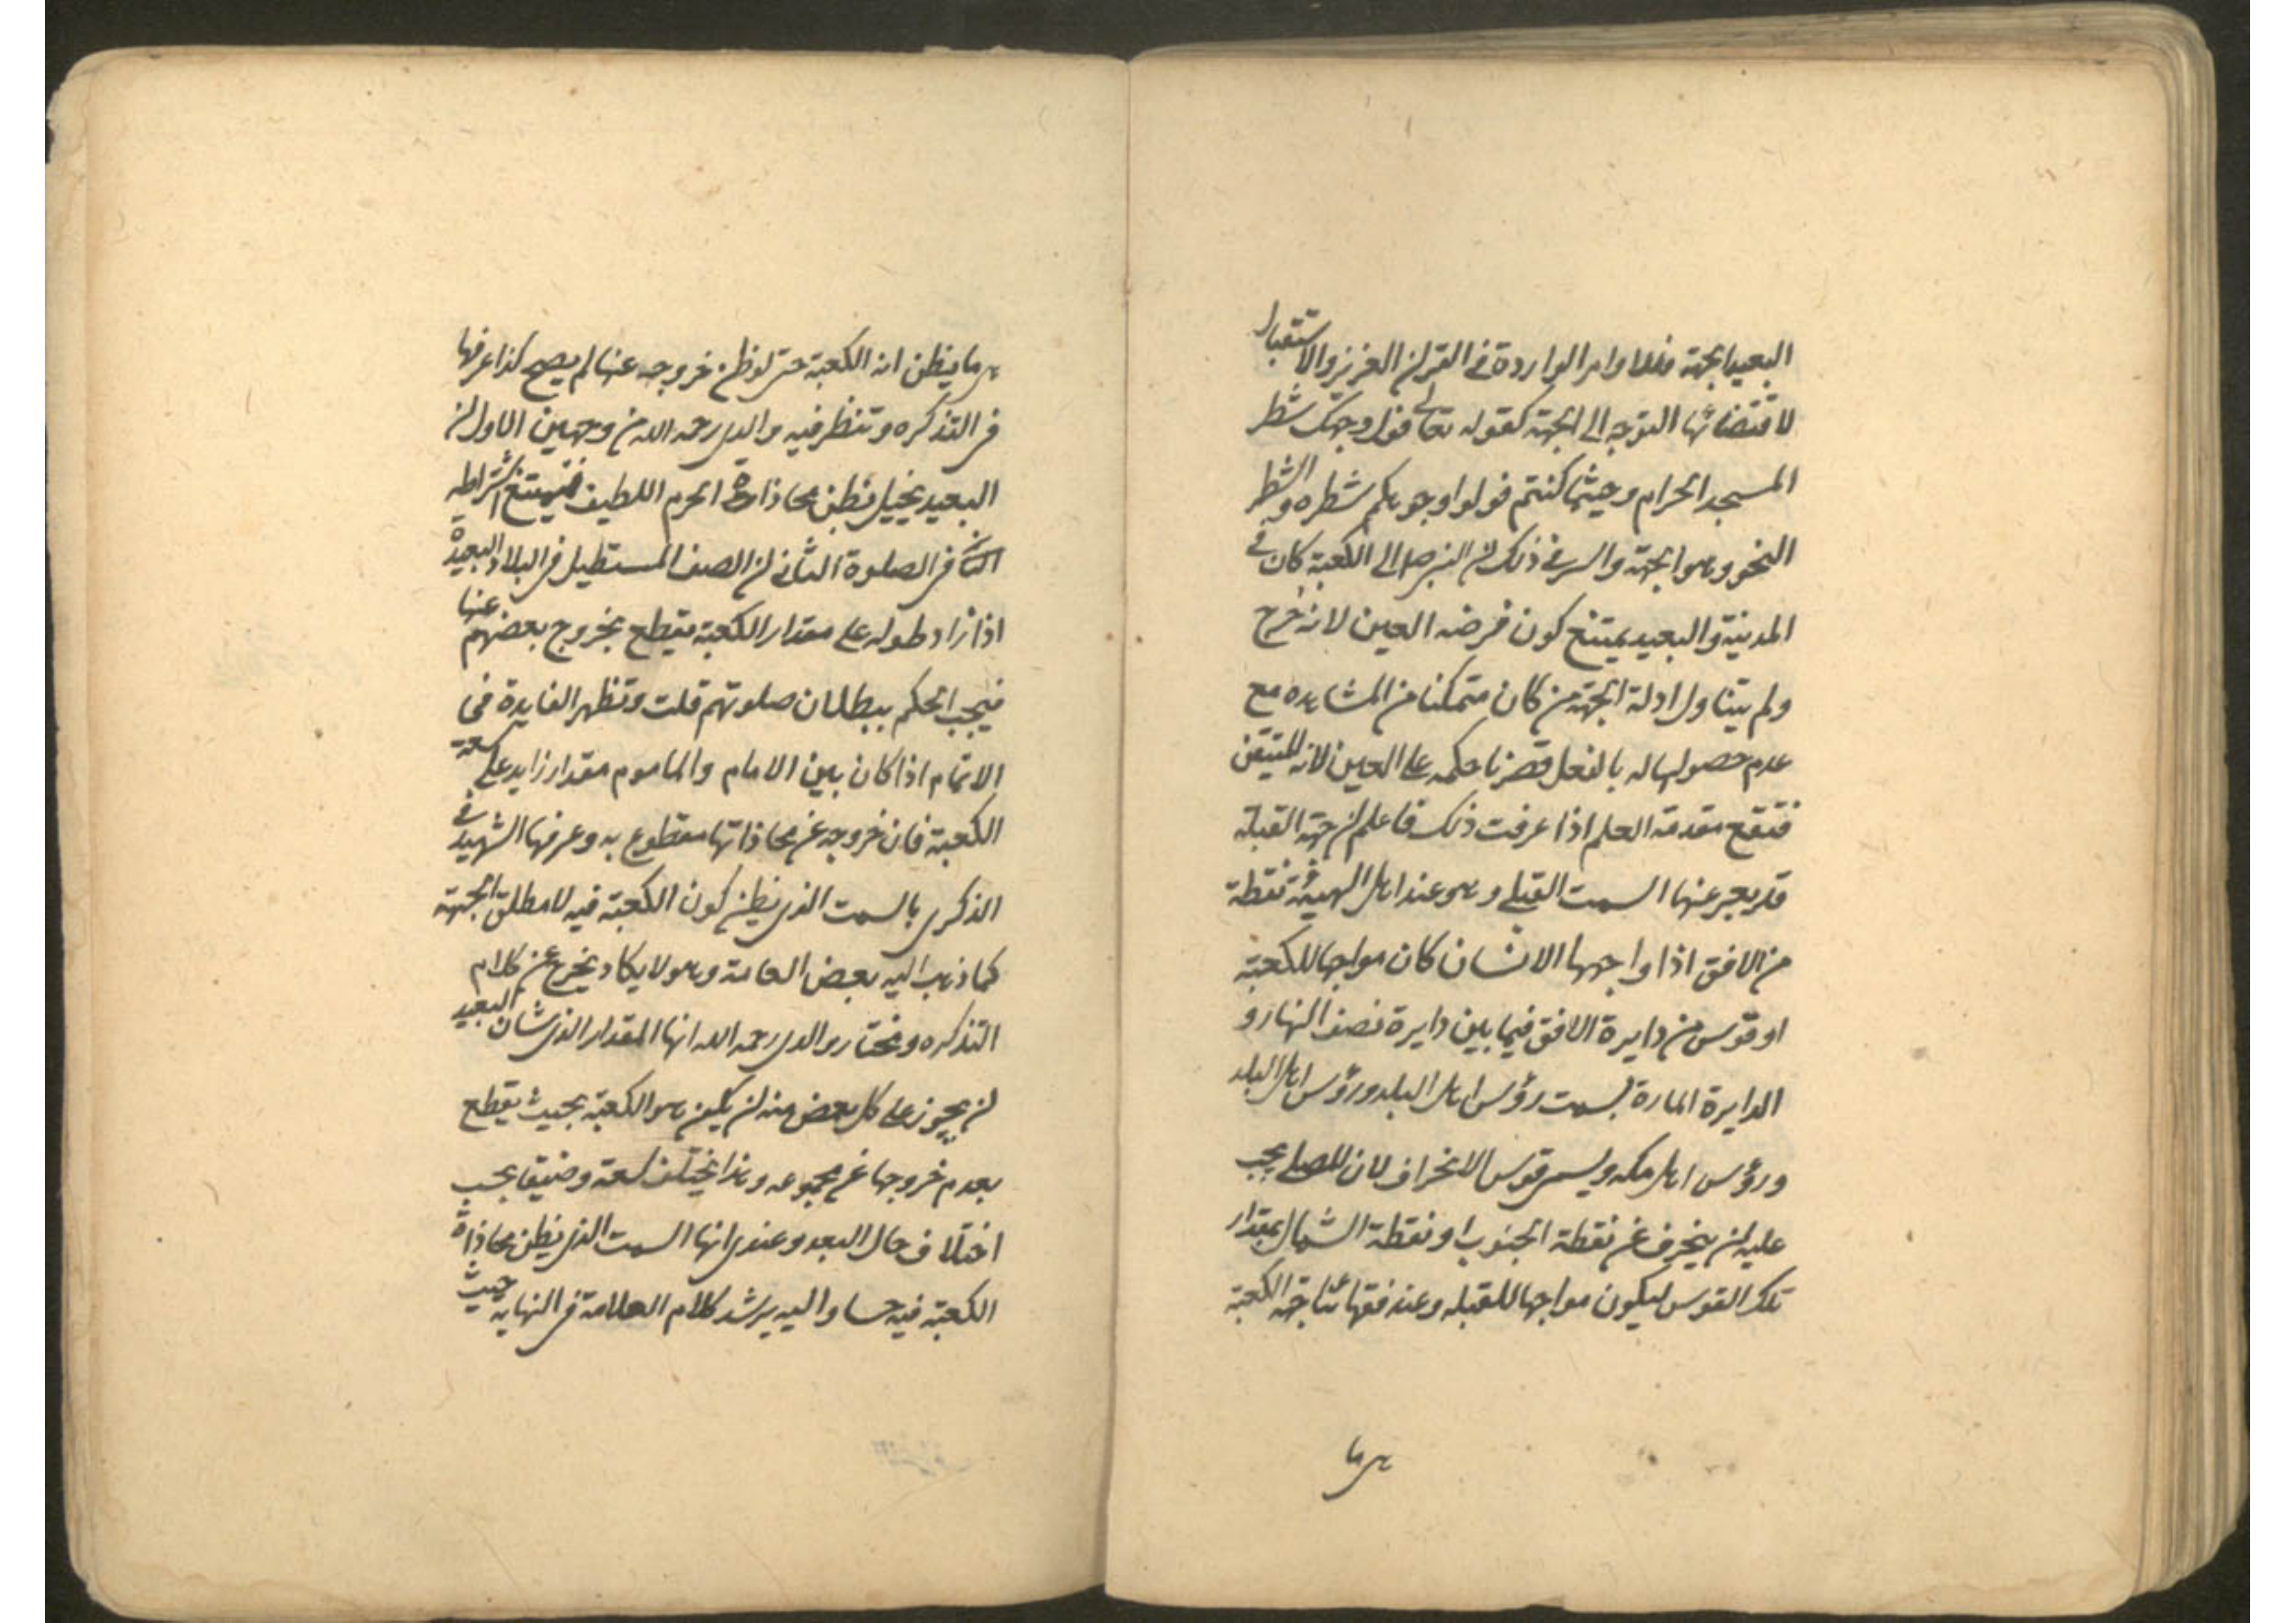 البعيد الجهة فللاوامر الواردة في القران العزيز والاستقبال
لاقتضائها التوجه الى الجهة كقوله تعالى فول وجهك شطر
المسجد الحرام وحيثما كنتم فولوا وجوهكم شطره والشطر
النحو وهو الجهة والسر في ذلك ان النبي ص الى الكعبة كان في
المدينة والبعيد يمتنع كون فرضه العين لانه خرج
ولم يتناول ادلة الجهة من كان متمكنا من المشاهده مع
عدم حصولها له بالفعل قصرنا حكمه على العين لانه المتيقن
فتقع مقدمة العلم اذا عرفت ذلك فاعلم ان جهة القبلة
قد يعبر عنها السمت القبلي وهو عند اهل الهيئة نقطة
من الافق اذا واجهها الانسان كان مواجها للكعبة
او قوس من دايرة الافق فيما بين دايرة نصف النهار و
الدايرة المارة بسمت رؤس اهل البلد ورؤس اهل البلد
ورؤس اهل مكه ويسمى قوس الانحراف لان المصلي يجب
عليه ان ينحرف عن نقطة الجنوب او نقطة الشمال بمقدار
تلك القوس ليكون مواجها للقبله وعند فقهائنا جهة الكعبة
هي ما
هي ما يظن انه الكعبة حتى لو ظن خروجه عنها لم يصح كذا عرفها
في التذكره وتنظر فيه والدي رحمه الله من وجهين الاول ان
البعيد يخيل فظن محاذاة الحرم اللطيف فيمتنع اشتراطه
في الصلوة الثاني ان الصف المستطيل في البلاد البعيدة
اذا زاد طوله على مقدار الكعبة يقطع بخروج بعضهم عنها
فيجب الحكم ببطلان صلوتهم قلت وتظهر الفايدة في
الائتمام اذا كان بين الامام والماموم مقدار زايد على سعة
الكعبة فان خروجه عن محاذاتها مقطوع به وعرفها الشهيد في
الذكرى بالسمت الذي يظن كون الكعبة فيه لا مطلق الجهة
كما ذهب اليه بعض العامة وهو لا يكاد يخرج عن كلام
التذكره ومختار والدي رحمه الله انها المقدار الذي شان البعيد
ان يجوز على كل بعض منه ان يكون هو الكعبة بحيث يقطع
بعدم خروجها عن مجموعه وهذا يختلف سعة وضيقا بحسب
اختلاف حال البعد وعندي انها السمت الذي يظن محاذاة
الكعبة فيه حسا واليه يرشد كلام العلامة في النهاية حيث